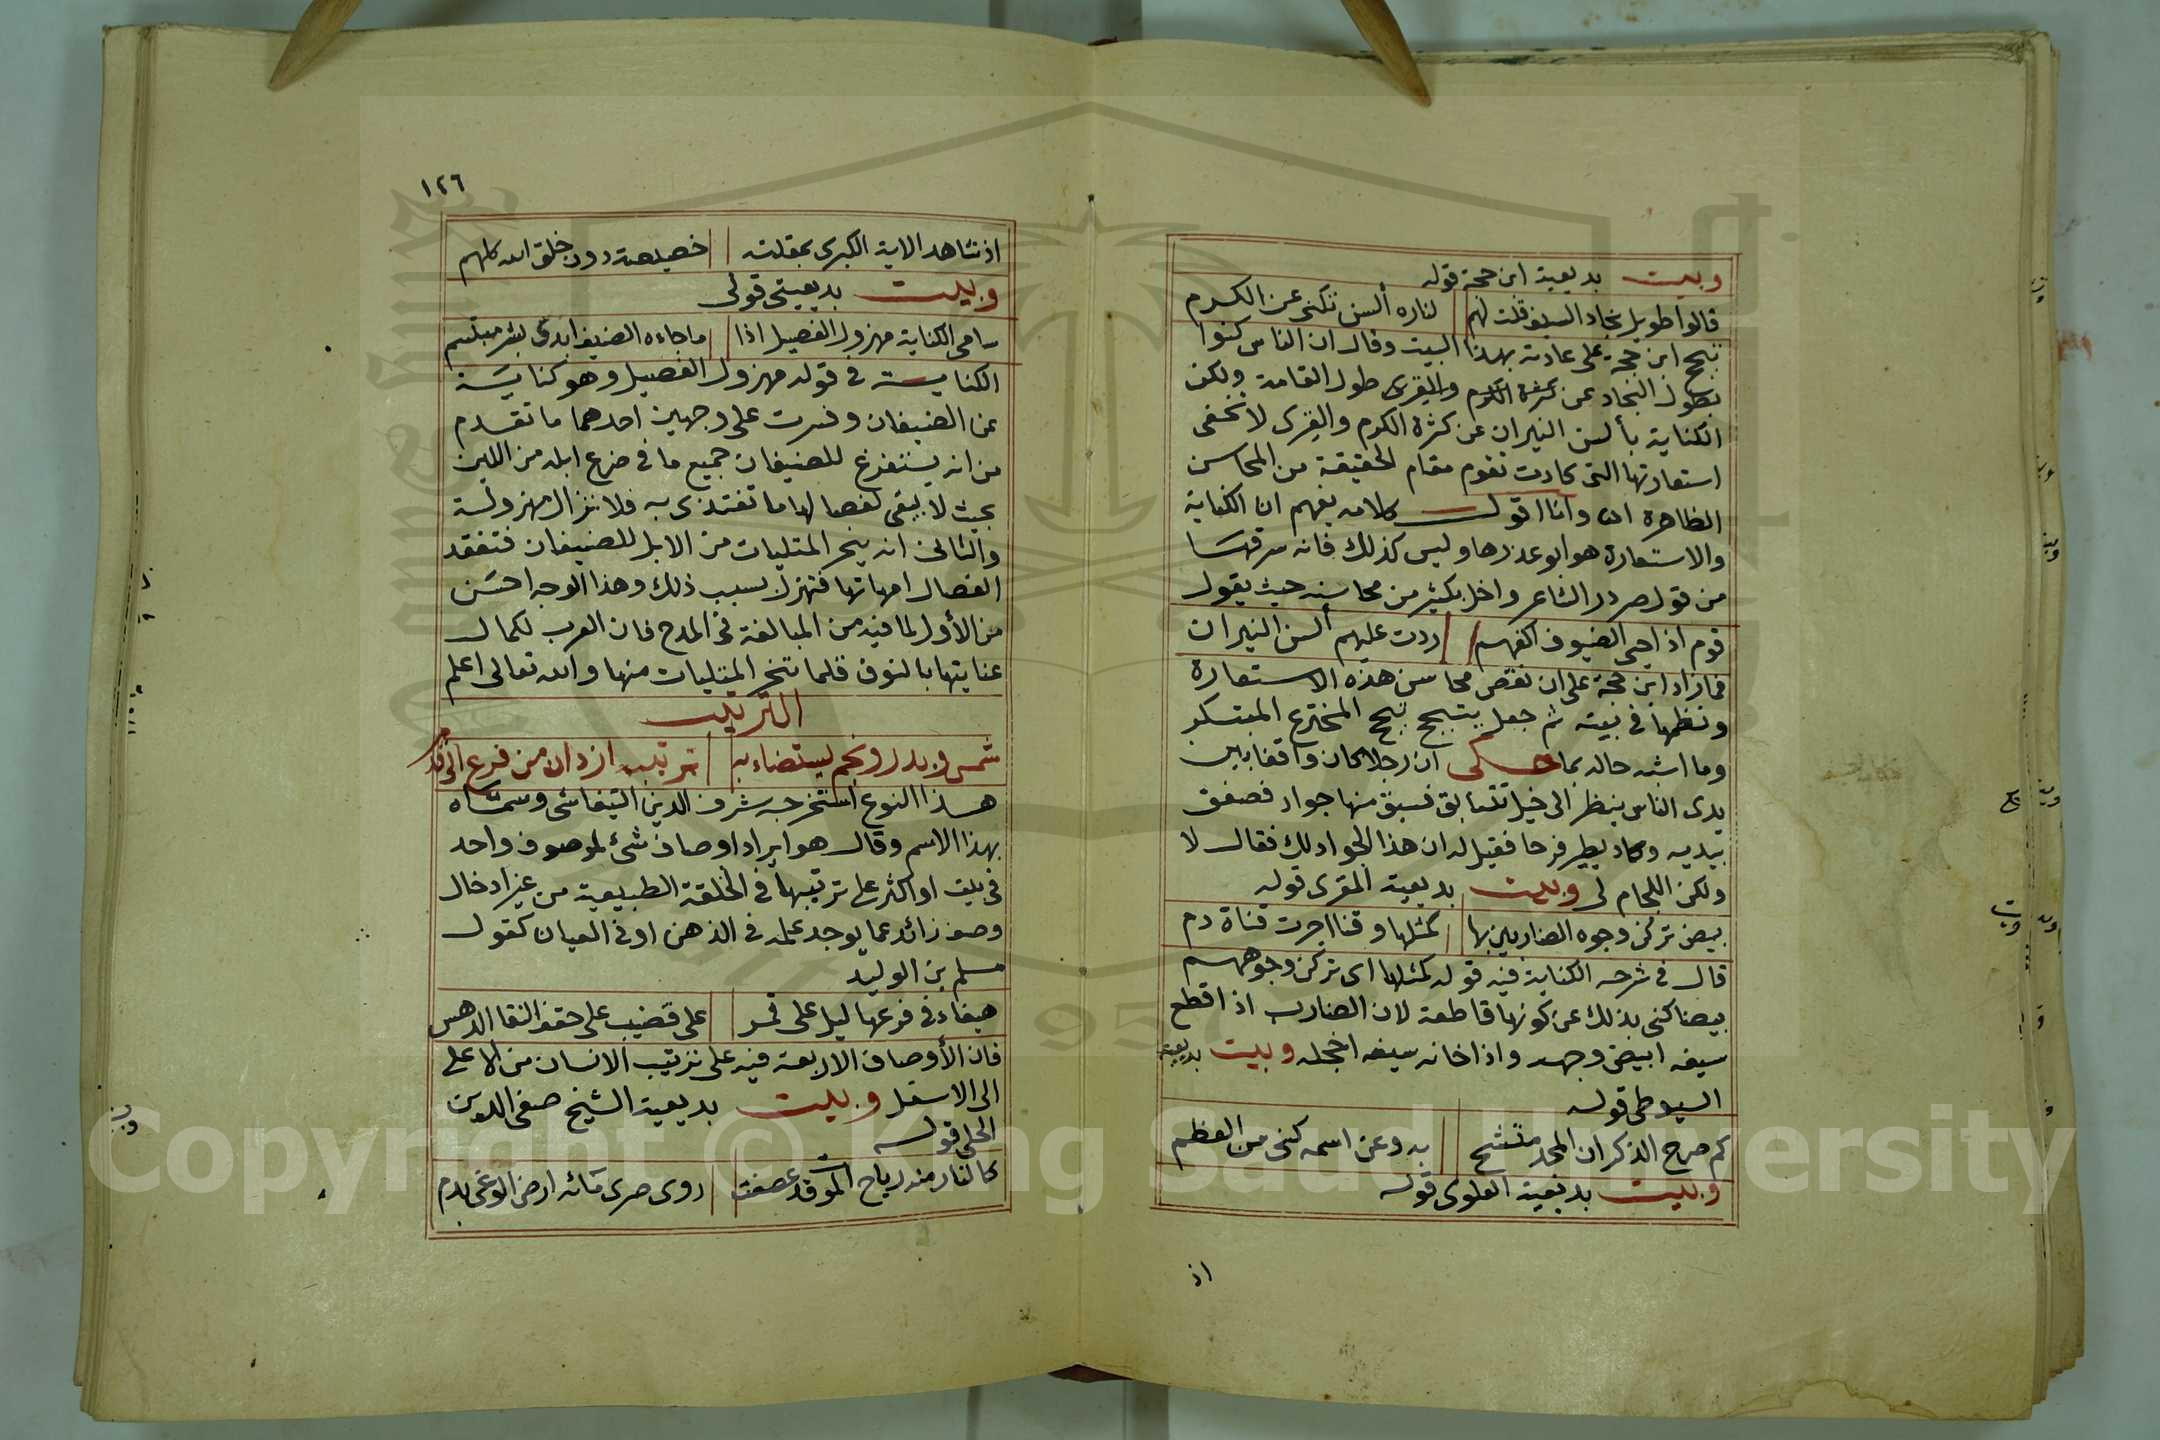 وبيت بديعية ابن حجة قوله
قالوا طويل نجاد السيف قلت لهم لناره ألسن تكنى عن الكرم
تبجح ابن حجة على عادته بهذا البيت وقال ان الناس كنوا
بطول النجاد عن كثرة الكرم والقرى طول القامة ولكن
الكناية بألسن النيران عن كثرة الكرم والقرى لا تخفى
استعارتها التى كادت تقوم مقام الحقيقة من المحاسن
الظاهرة اه وانا اقول كلامه يفهم ان الكناية
والاستعارة هو ابو عذرها وليس كذلك فانه سرقها
من قول صردر الشاعر واخل بكثير من محاسنه حيث يقول
قوم اذا حي الضيوف اكفهم ردت عليهم ألسن النيران
فما زاد ابن حجة على ان نقص محاسن هذه الاستعارة
ونظمها فى بيته ثم جعل يتبجح تبجح المخترع المبتكر
وما اشبه حاله بما حكى ان رجلا كان واقفا بين
يدى الناس ينظر الى خيل تتسابق فسبق منها جواد فصفق
بيديه وكاد يطير فرحا فقيل له ان هذا الجواد لك فقال لا
ولكن اللجام لى وبيت بديعية المقرى قوله
بيض تركن وجوه الضاربين بها كمثلها وقنا اجرت قناة دم
قال فى شرحه الكناية فيه قوله كمثلها اى تركن وجوههم
بيضا كنى بذلك عن كونها قاطعة لان الضارب اذا قطع
سيفه ابيض وجهه واذا خانه سيفه اخجله وبيت بديعية
السيوطى قوله
كم صرح الذكر ان المجد متشح به وعن اسمه كنى من العظم
وبيت بديعية العلوى قوله
اذ
١٢٦
اذ شاهد الاية الكبرى بمقلته خصيصة دون خلق الله كلهم
وبيت بديعيتى قولى
سامى الكناية مهزول الفصيل اذا ما جاءه الضيف ابدى بشر مبتسم
الكناية فى قوله مهزول الفصيل وهو كناية
عن الضيفان وفسرت على وجهين احدهما ما تقدم
من انه يستفرغ للضيفان جميع ما فى ضرع ابله من اللبن
بحيث لا يبقى لفصالها ما تغتذى به فلا تزال مهزولة
والثانى انه ينحر المتليات من الابل للضيفان فتفقد
الفصال امهاتها فتهزل بسبب ذلك وهذا الوجه احسن
من الأول لما فيه من المبالغة فى المدح فان العرب لكمال
عنايتها بالنوق قلما تنحر المتليات منها والله تعالى اعلم
الترتيب
شمس وبدر ونجم يستضاء به ترتيب ازدان من فرع الى قدم
هذا النوع استخرجه شرف الدين التيفاشى وسماه
بهذا الاسم وقال هو ايراد اوصاف شئ لموصوف واحد
فى بيت او اكثر على ترتيبها فى الخلقة الطبيعية من غير ادخال
وصف زائد عما يوجد علمه فى الذهن او فى العيان كقول
مسلم بن الوليد
هيفاء فى فرعها ليل على قمر على قضيب على حقف النقا الدهس
فان الأوصاف الاربعة فيه على ترتيب الانسان من الاعلى
الى الاسفل وبيت بديعية الشيخ صفى الدين
الحلى قوله
كالنار منه رياح الموت قد عصفت روى صرى مائه ارض الوغى بدم
Copyright © King Saud University
1957